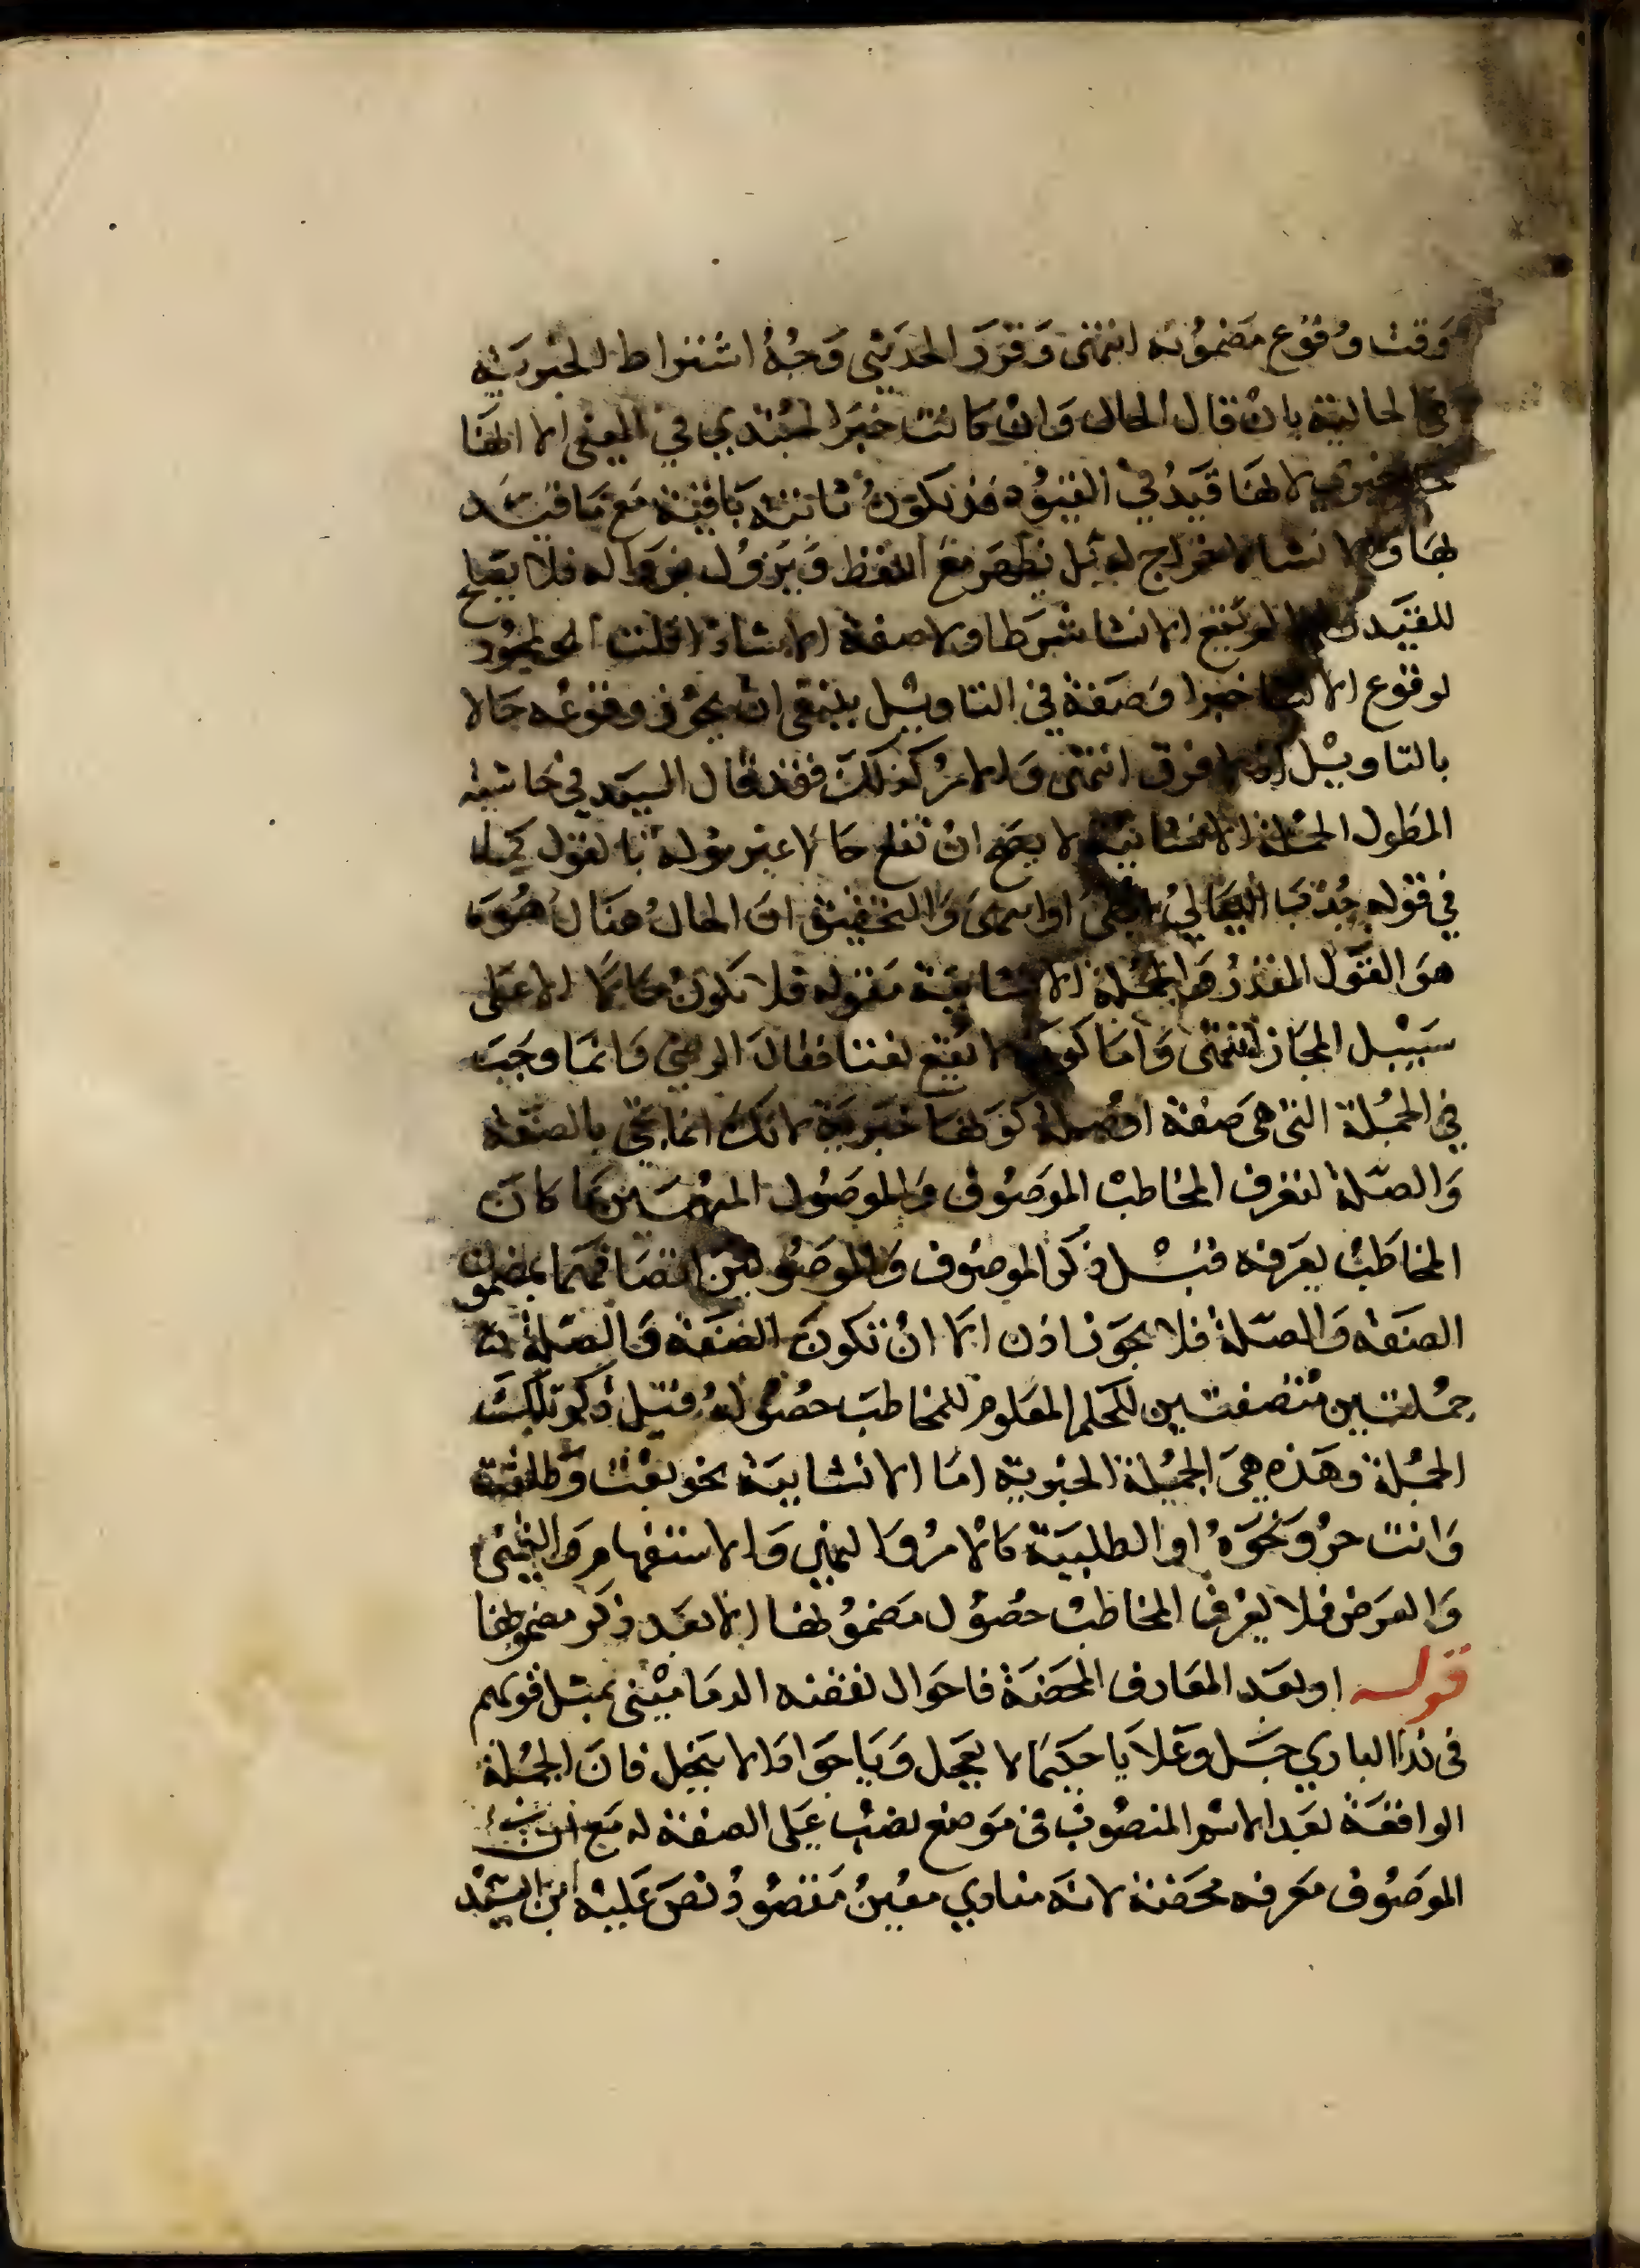 وقت وقوع مضمونه انتهى وقرر الحديثي وجه اشتراط الخبرية
في الحالية بان قال الحال وان كانت خبرا لمبتدي في المعنى الا انها
لانها قيد في القيود قد تكون ثابتة باقية مع ما قيد
بها لا خراج له بل يظهر مع اللفظ ويزول بزواله فلا يصلح
للقيد لم يقع الانشا شرطا ولا صفة الا شاذا قلت المجوز
لوقوع الانشا خبرا وصفة في التاويل ينبغي ان يجوز وقوعه حالا
بالتاويل فرق انتهى والامر كذلك فقد قال السيد في حاشية
المطول الجملة الانشائية لا يصح ان تقع حالا غير مؤلة بالقول كما
في قوله جذب الليالي ابطئ او اسرعي والتحقيق ان الحال هناك هو
هو القول المقدر والجملة الانشائية مقوله فلا تكون حالا الا على
سبيل المجاز انتهى واما لا تقع نعتا فقال الرضي وانما وجب
في الجملة التي هي صفة او صلة كونها خبرية لانك انما تجي بالصفة
والصلة لتعرف المخاطب الموصوف والموصول المبهمين بما كان
المخاطب يعرفه قبل ذكر الموصوف والموصول من اتصافهما بمضمون
الصفة والصلة فلا يجوز اذن الا ان تكون الصفة والصلة
جملتين متضمنتين للحكم المعلوم للمخاطب حصوله قبل ذكر تلك
الجملة وهذه هي الجملة الخبرية اما الانشايية نحو بعت وطلقت
وانت حر ونحوه او الطلبية كالامر والنهي والاستفهام والتمني
والعرض فلا يعرف المخاطب حصول مضمونها الا بعد ذكر مضمونها
قوله او بعد المعارف المحضة فاحوال نقضه الدماميني بمثل قولهم
في ندا الباري جل وعلا يا حكيما لا يعجل ويا جوادا لا يبخل فان الجملة
الواقعة بعد الاسم المنصوب في موضع نصب على الصفة له مع ان
الموصوف معرفه محضة لانه منادي معين مقصود نص عليه ابن السيد